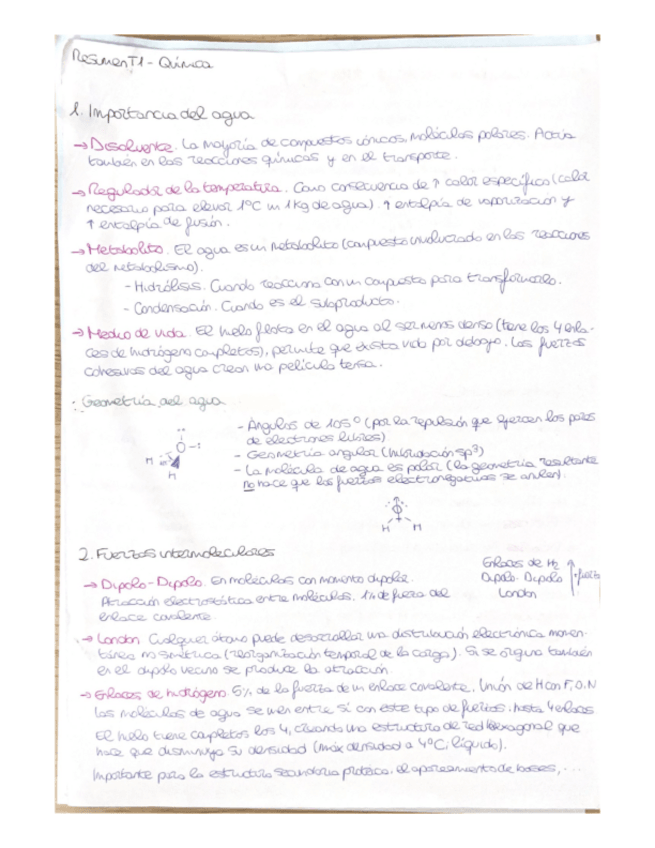 Resumen T1 - Química
1. Importancia del agua
→ Disolvente. La mayoría de compuestos iónicos, moléculas polares. Actúa
también en las reacciones químicas y en el transporte.
→ Regulador de la temperatura. Como consecuencia de ↑ calor específico (calor
necesario para elevar 1°C en 1 Kg de agua). ↑ entalpía de vaporización y
↑ entalpía de fusión.
→ Metabolito. El agua es un metabolito (compuesto involucrado en las reacciones
del metabolismo).
- Hidrólisis. Cuando reacciona con un compuesto para transformarlo.
- Condensación. Cuando es el subproducto.
→ Medio de vida. El hielo flota en el agua al ser menos denso (tiene los 4 enla-
ces de hidrógeno completos), permite que exista vida por debajo. Las fuerzas
cohesivas del agua crean una película tensa.
Geometría del agua
- Ángulos de 105° (por la repulsión que ejercen los pares
de electrones libres)
- Geometría angular (hibridación sp³)
- La molécula de agua es polar (la geometría resultante
no hace que las fuerzas electronegativas se anulen).
O
H
H
O
H H
2. Fuerzas intermoleculares
Enlaces de H₂
Dipolo-Dipolo
London
↑ + fuerte
→ Dipolo-Dipolo. En moléculas con momento dipolar.
Atracción electrostática entre moléculas. 1% de fuerza del
enlace covalente
→ London. Cualquier átomo puede desarrollar una distribución electrónica momen-
tánea no simétrica (reorganización temporal de la carga). Si se origina también
en el dipolo vecino se produce la atracción.
→ Enlaces de hidrógeno. 5% de la fuerza de un enlace covalente. Unión de H con F, O, N
Las moléculas de agua se unen entre sí con este tipo de fuerzas, hasta 4 enlaces
El hielo tiene completos los 4, creando una estructura de red hexagonal que
hace que disminuya su densidad (máx densidad a 4°C, líquido).
Importante para la estructura secundaria proteica, el apareamiento de bases, ...